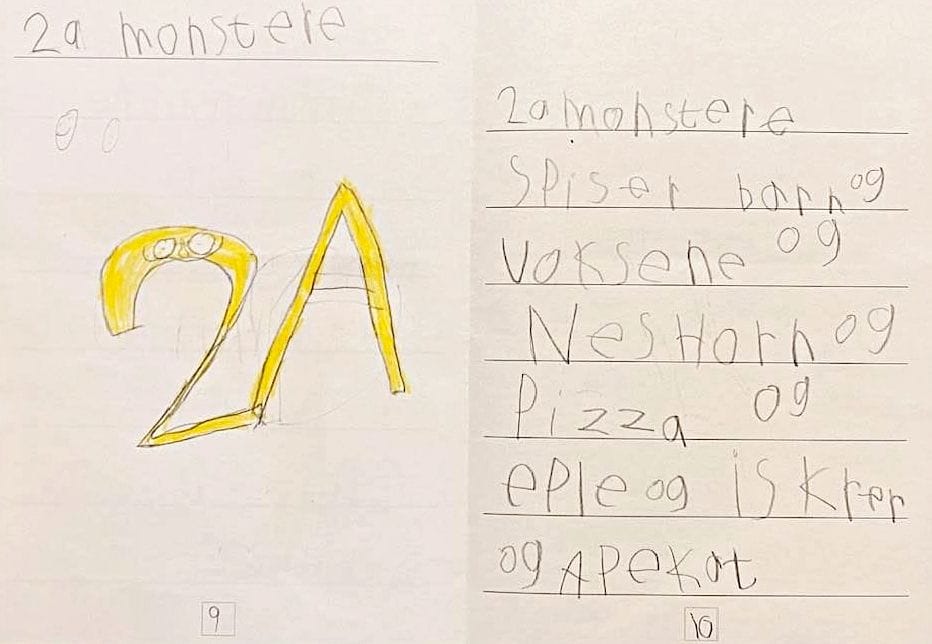 2a monstere
2A
9
2a monstere
Spiser barn og
voksene og
NesHorn og
Pizza og
ePle og iskrer
og APeKat
10